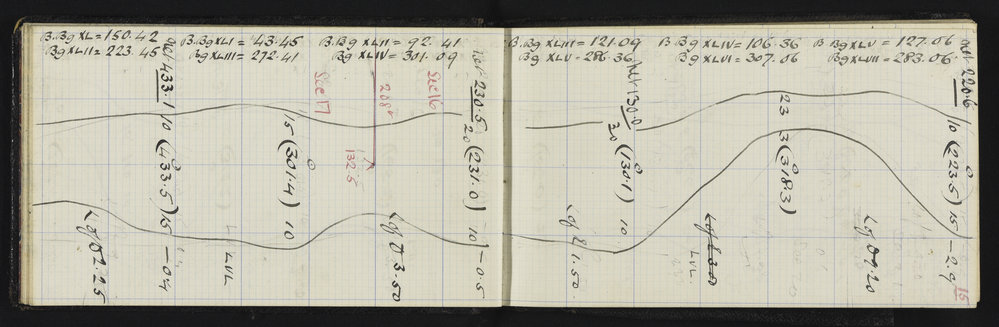 B.Bg XL = 150.42 B.Bg XLI = 43.45 B.Bg XLII = 92.41
Bg XLII = 223.45 Bg XLIII = 272.41 Bg XLIV = 301.09
Net 433.1
10 (433.5) 15 - 0.4
Lof 2.25
15 (301.4) 10
LVL
Sec 17
208
132.5
Sec 16
Lof 3.50
Net 230.5
20 (231.0) 10 - 0.5
B.Bg XLIII = 121.09 B Bg XLIV = 106.36 B Bg XLV = 127.06
Bg XLV = 286.36 Bg XLVI = 307.06 Bg XLVII = 283.06
Net 130.0
20 (130.1) 10
Lof 1.50
23 3 (318.3)
LVL
Lof 9.20
Net 220.6
10 (223.5) 15 - 2.9
15